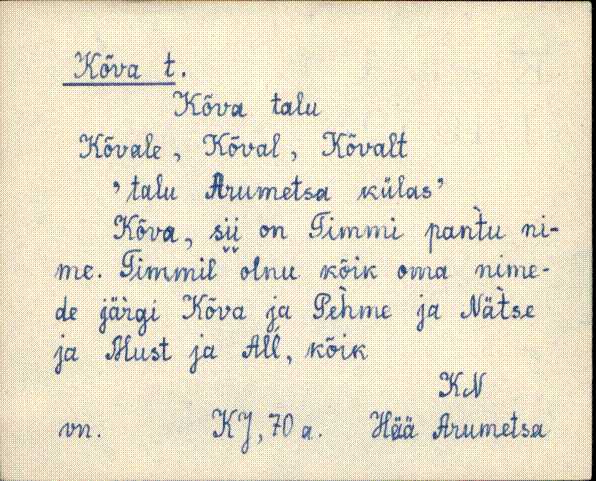 Kõva t.
Kõva talu
Kõvale, Kõval, Kõvalt
’talu Arumetsa külas’
Kõva, sii on Timmi pan̆̀tu ni-
me. Timmil olnu kõik oma nime-
de jär̀gi Kõva ja Peh̀me ja Nät̀se
ja Must ja All̀, kõik
KN
vn. KJ, 70 a. Hää Arumetsa